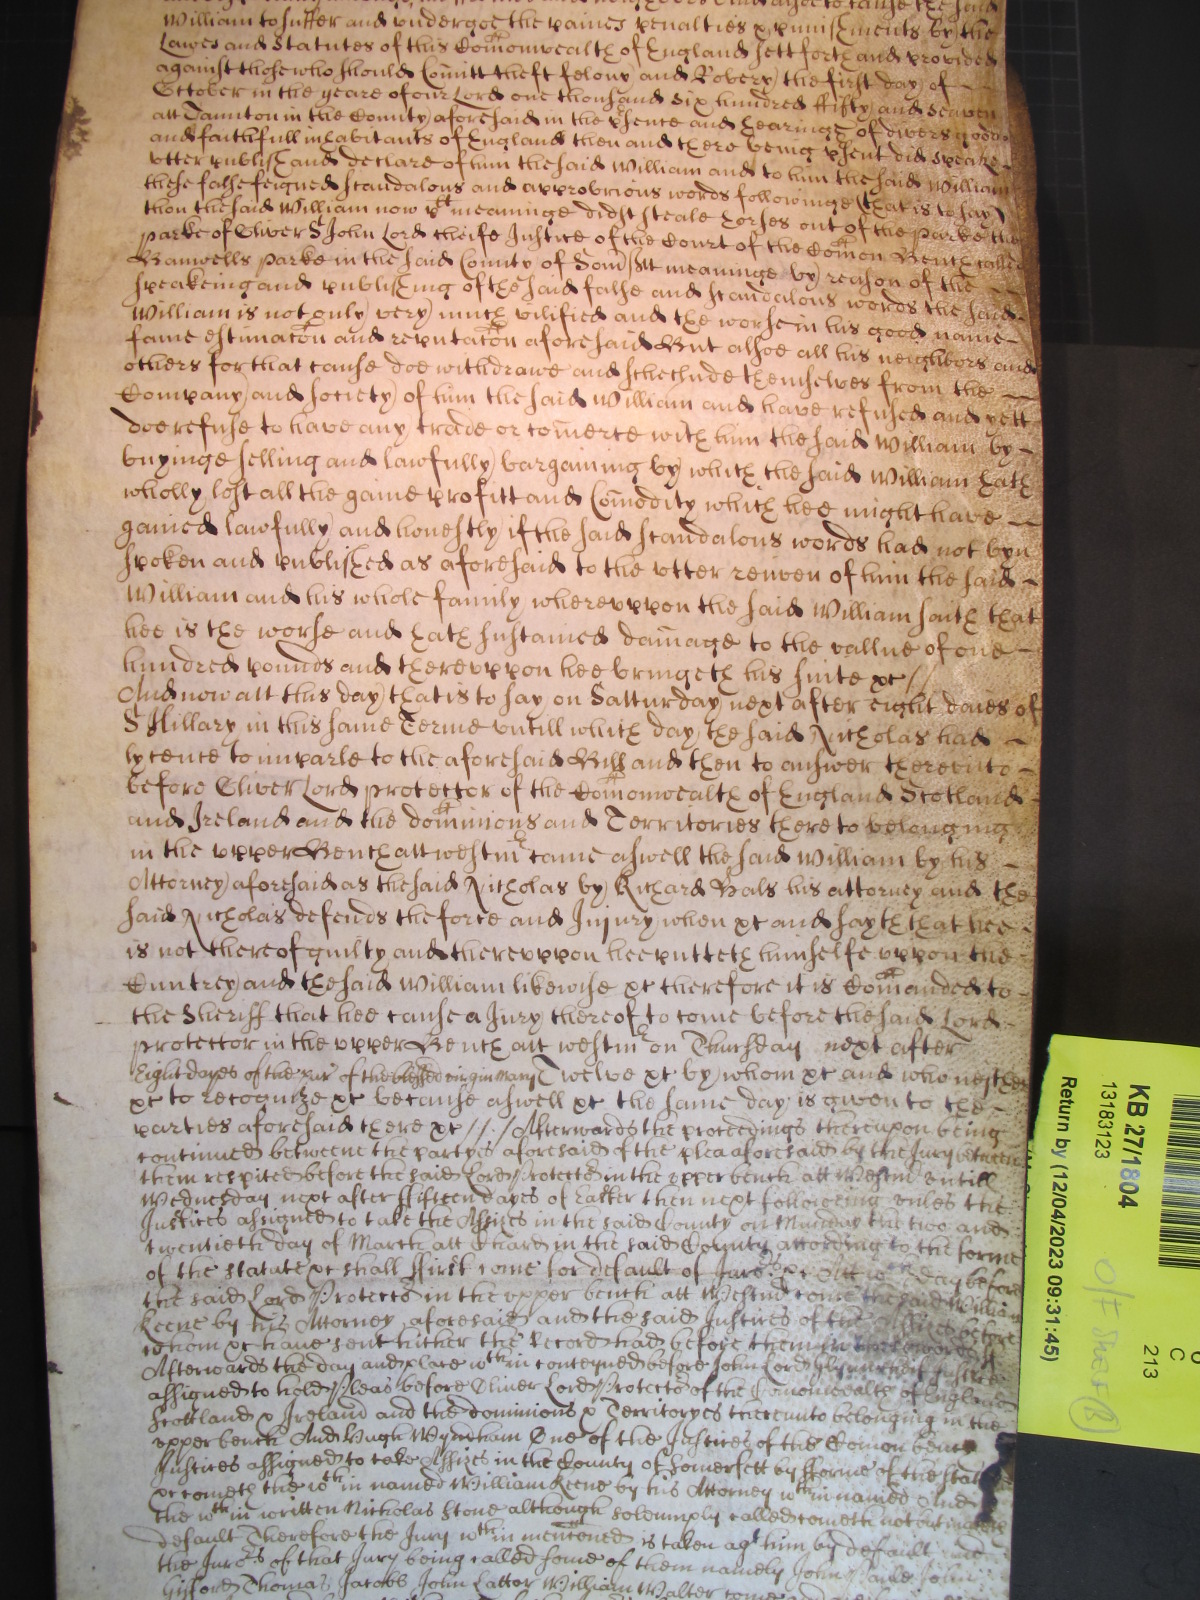 William to suffer and undergoe the paines penalties & punishments by the
Lawes and Statutes of this Comonwealth of England sett forth and provided
against those who should Comitt theft felony and Robery the first day of
October in the yeare of our Lord one thousand six hundred fifty and seaven
att Taunton in the County aforesaid in the psence and hearinge of divers good
and faithfull inhabitants of England then and there being psent did speake
utter publish and declare of him the said William and to him the said William
these false feigned scandalous and approbrious words followinge (that is to say)
thou the said William now plt meaninge didst steale horses out of the Parke the
parke of Oliver St John Lord cheife Justice of the Court of the Comon Bench called
Barwells parke in the said County of Som sett meaninge by reason of the
speakeing and publishing of the said false and scandalous words the said
William is not only very much vilified and the worse in his good name
fame estimacon and reputacon aforesaid But alsoe all his neighbors and
others for that cause doe withdrawe and scheclude themselves from the
Company and society of him the said William and have refused and yett
doe refuse to have any trade or comerce with him the said William by
buyinge selling and lawfully bargaining by which the said William hath
wholly lost all the gaine profitt and Comodity which hee might have
gained lawfully and honestly if the said scandalous words had not byn
spoken and published as aforesaid to the utter reuven of him the said
William and his whole family whereuppon the said William saith that
hee is the worse and hath sustained damage to the vallue of one
hundred pounds and thereuppon hee bringeth his suite &c //
And now att this day that is to say on Satturday next after eight daies of
St Hillary in this same Terme untill which day the said Nicholas had
lycence to imparle to the aforesaid Bill and then to answer thereunto
before Oliver Lord Protector of the Comonwealth of England Scotland
and Ireland and the dominions and Territories there to belonging
in the upper Bench att westmr came aswell the said William by his
Attorney aforesaid as the said Nicholas by Richard Bals his attorney and the
said Nicholas defends the force and Injury when &c and sayth that hee
is not thereof guilty and thereuppon hee putteth himselfe uppon the
Cuntrey and the said William likewise &c therefore it is Comanded to
the Sheriff that hee cause a Jury thereof to come before the said Lord
protector in the upper Bench att westmr on Thursday next after
Eight dayes of the pur of the blessed virgin mary Twelve &c by whom &c and who neither
&c to recognize &c because aswell &c the same day is given to the
parties aforesaid there &c //./ Afterwards the proceedings thereupon being
continued betweene the partyes aforesaid of the plea aforesaid by the Jury betweene
them respited before the said Lord Protector in the upper bench att Westmr untill
Wednesday next after fifteen dayes of Easter then next following unles the
Justices assigned to take the Assizes in the said County on Munday the two and
twentieth day of March att Chard in the said County according to the forme
of the statute &c shall first come for default of Juro &c Att wch day before
the said Lord Protector in the upper bench att Westmr come the said William
Keene by his Attorney aforesaid and the said Justices of the Assizes before
whom &c have sent hither the Record had before them in these words
Afterwards the day and place wthin conteyned before John Lord Glynn cheif Justice
assigned to hold Pleas before Oliver Lord Protector of the Comonwealth of England
Scottland & Ireland and the dominions & Territoryes thereunto belonging in the
upper bench And Hugh Wyndham One of the Justices of the Comon bench
Justices assigned to take Assizes in the County of Somersett by forme of the statute
&c cometh the wthin named William Keene by his Attorney wthin named And
the wthin written Nicholas Stone although solemnply called cometh not but maketh
default Therefore the Jury wthin mencioned is taken agt him by default and
the Juros of that Jury being called some of them namely John John
Gifford Thomas Jacobs John Lattor William Walter come
KB 27/1804
13183123
Return by (12/04/2023 09:31:45)
C
213